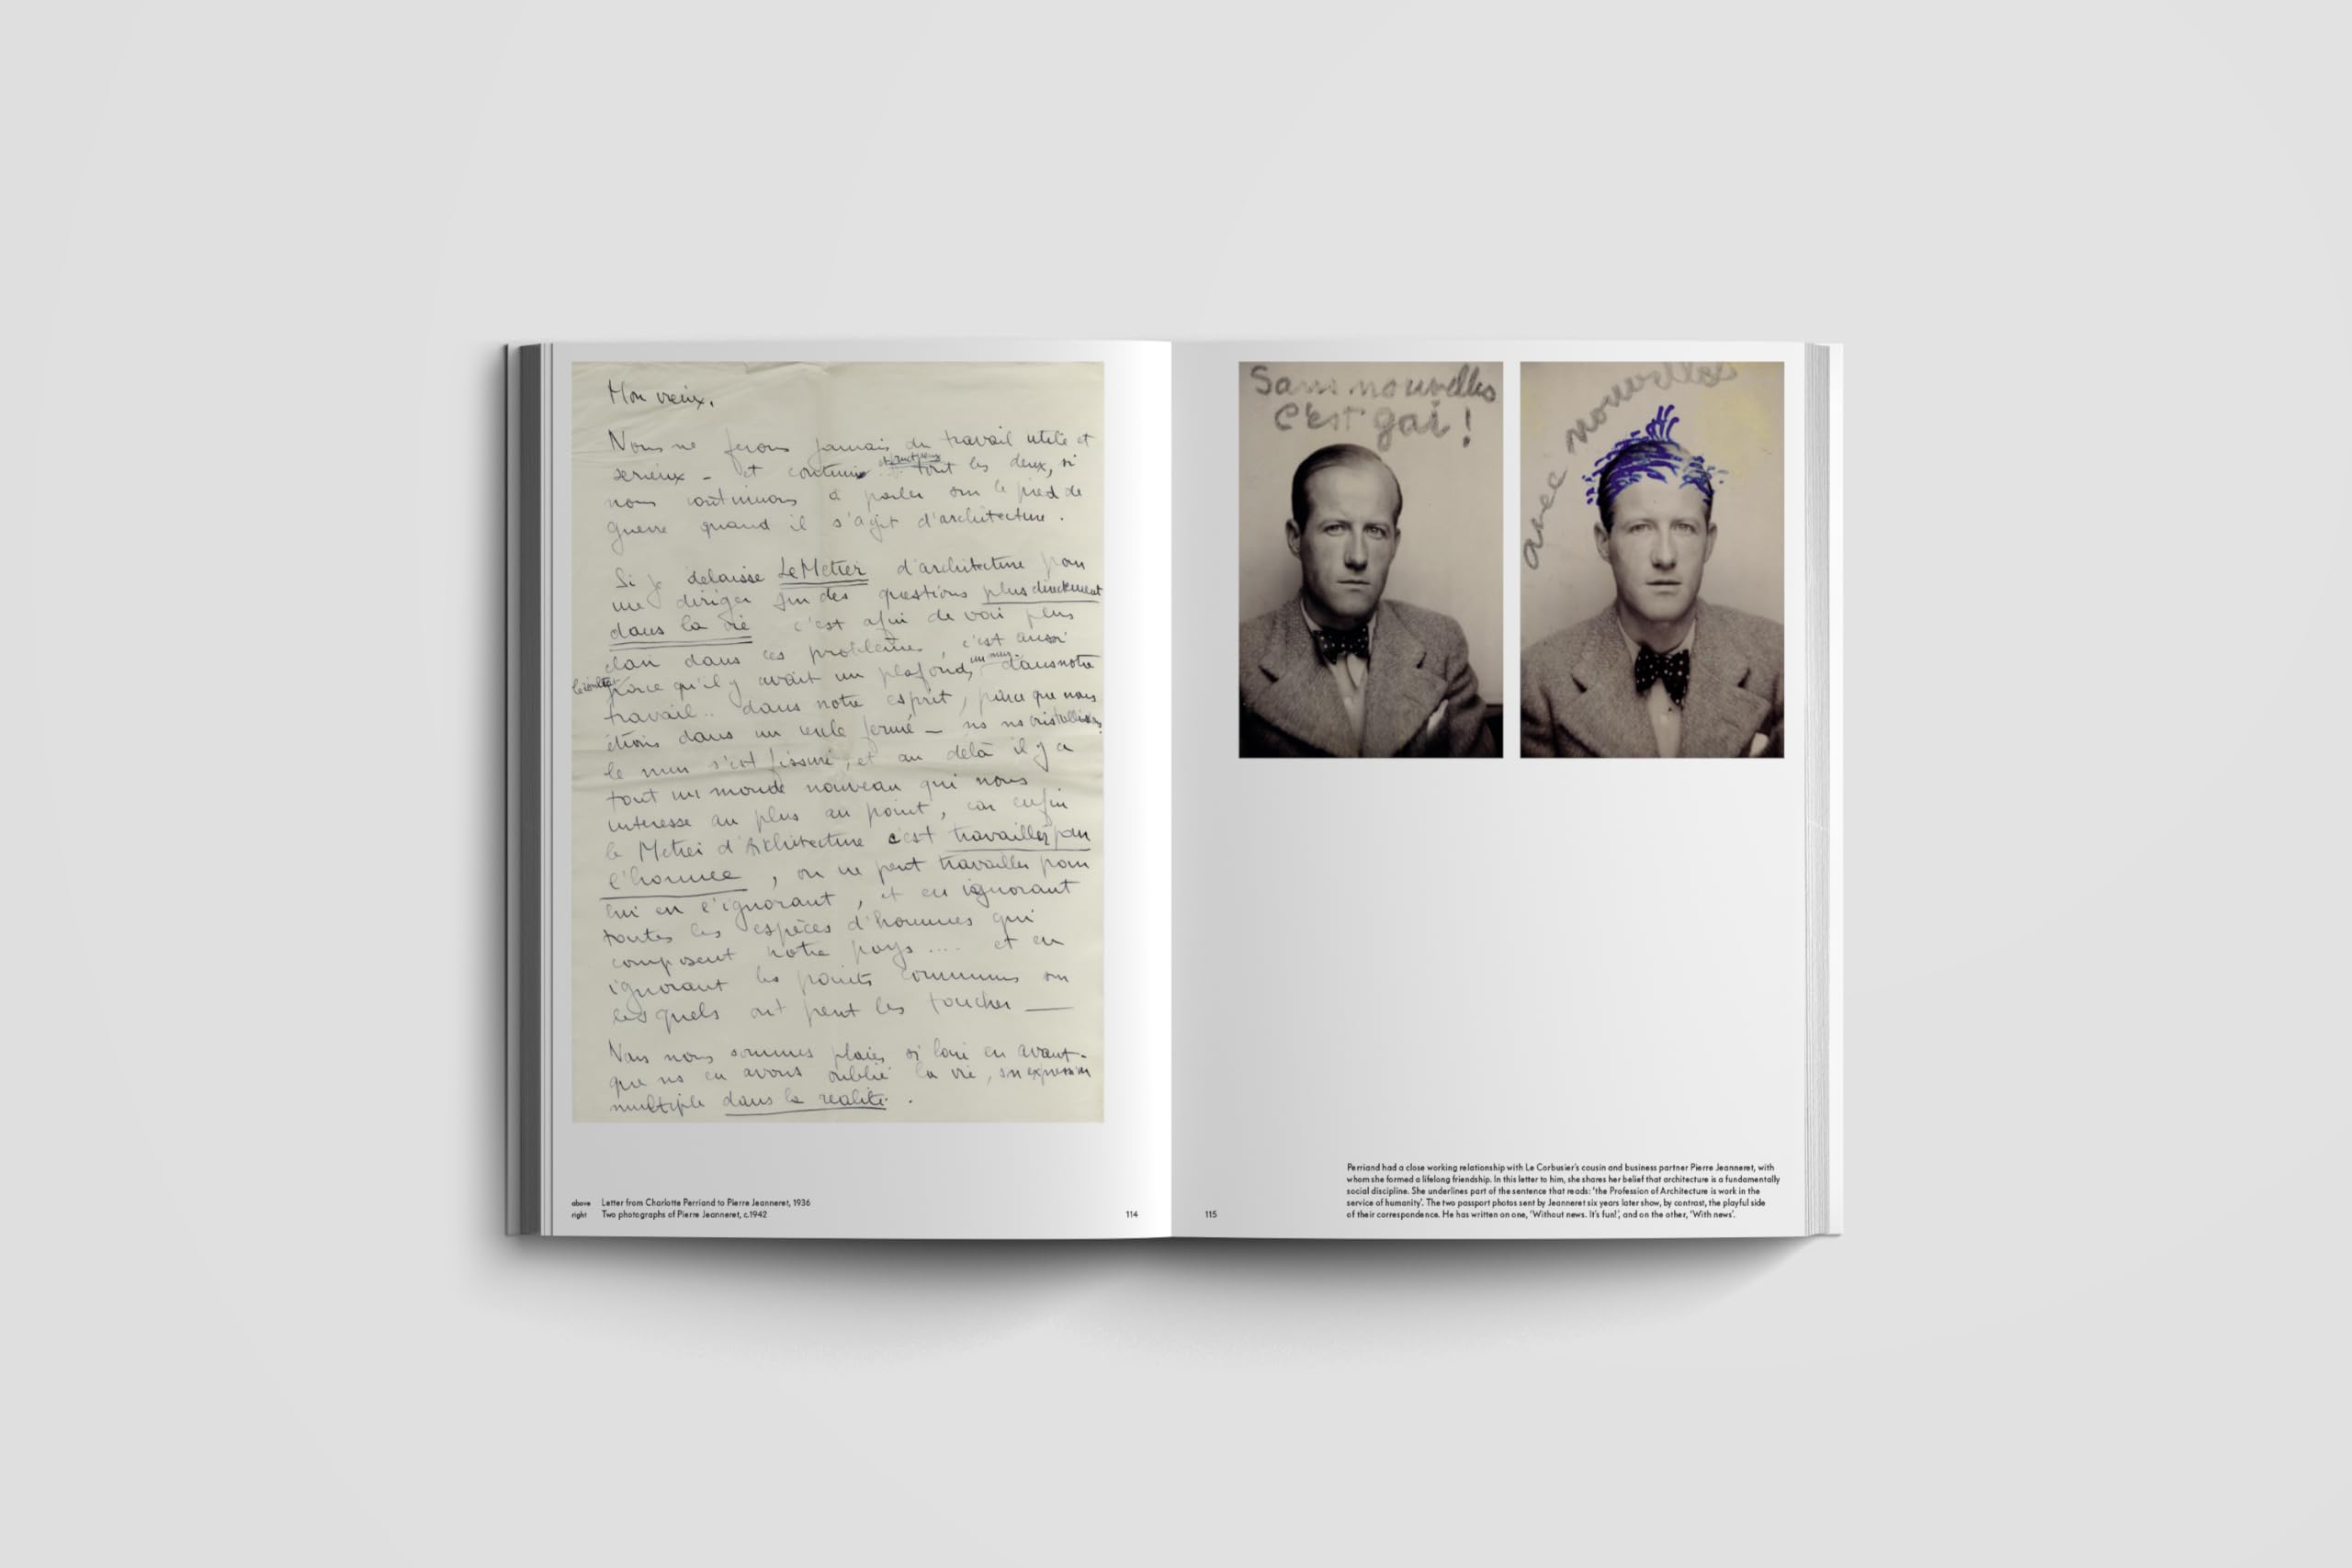 Mon vieux,
Nous ne ferons jamais du travail utile et
serieux - et tout les deux, si
nous continuons à parler sur le pied de
guerre quand il s'agit d'architecture.
Si je delaisse Le Metier d'architecture pour
me diriger sur des questions plus directement
dans la vie c'est afin de voir plus
clair dans ces problèmes, c'est aussi
parce qu'il y avait un plafond, un mur dans notre
travail.. dans notre esprit, parce que nous
étions dans un cercle fermé - ns ns cristallisions
le mur s'est fissuré, et au delà il y a
tout un monde nouveau qui nous
interesse au plus au point, car enfin
le Metier d'Architecture c'est travailler pour
l'homme, on ne peut travailler pour
lui en l'ignorant, et en ignorant
toutes les espèces d'hommes qui
composent notre pays .... et en
ignorant les points communs sur
lesquels ont peut les toucher —
Nous nous sommes placés si loin en avant-
que ns en avons oublié la vie, son expression
multiple dans la realité.
above Letter from Charlotte Perriand to Pierre Jeanneret, 1936
right Two photographs of Pierre Jeanneret, c.1942
114
Sans nouvelles
C'est gai !
avec nouvelles
115
Perriand had a close working relationship with Le Corbusier's cousin and business partner Pierre Jeanneret, with
whom she formed a lifelong friendship. In this letter to him, she shares her belief that architecture is a fundamentally
social discipline. She underlines part of the sentence that reads: 'the Profession of Architecture is work in the
service of humanity'. The two passport photos sent by Jeanneret six years later show, by contrast, the playful side
of their correspondence. He has written on one, 'Without news. It's fun!', and on the other, 'With news'.